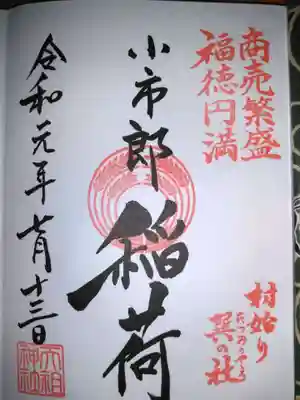 商売繁盛
福徳円満
村始り
巽の社
たつみのやしろ
小市郎稲荷
令和元年七月十三日